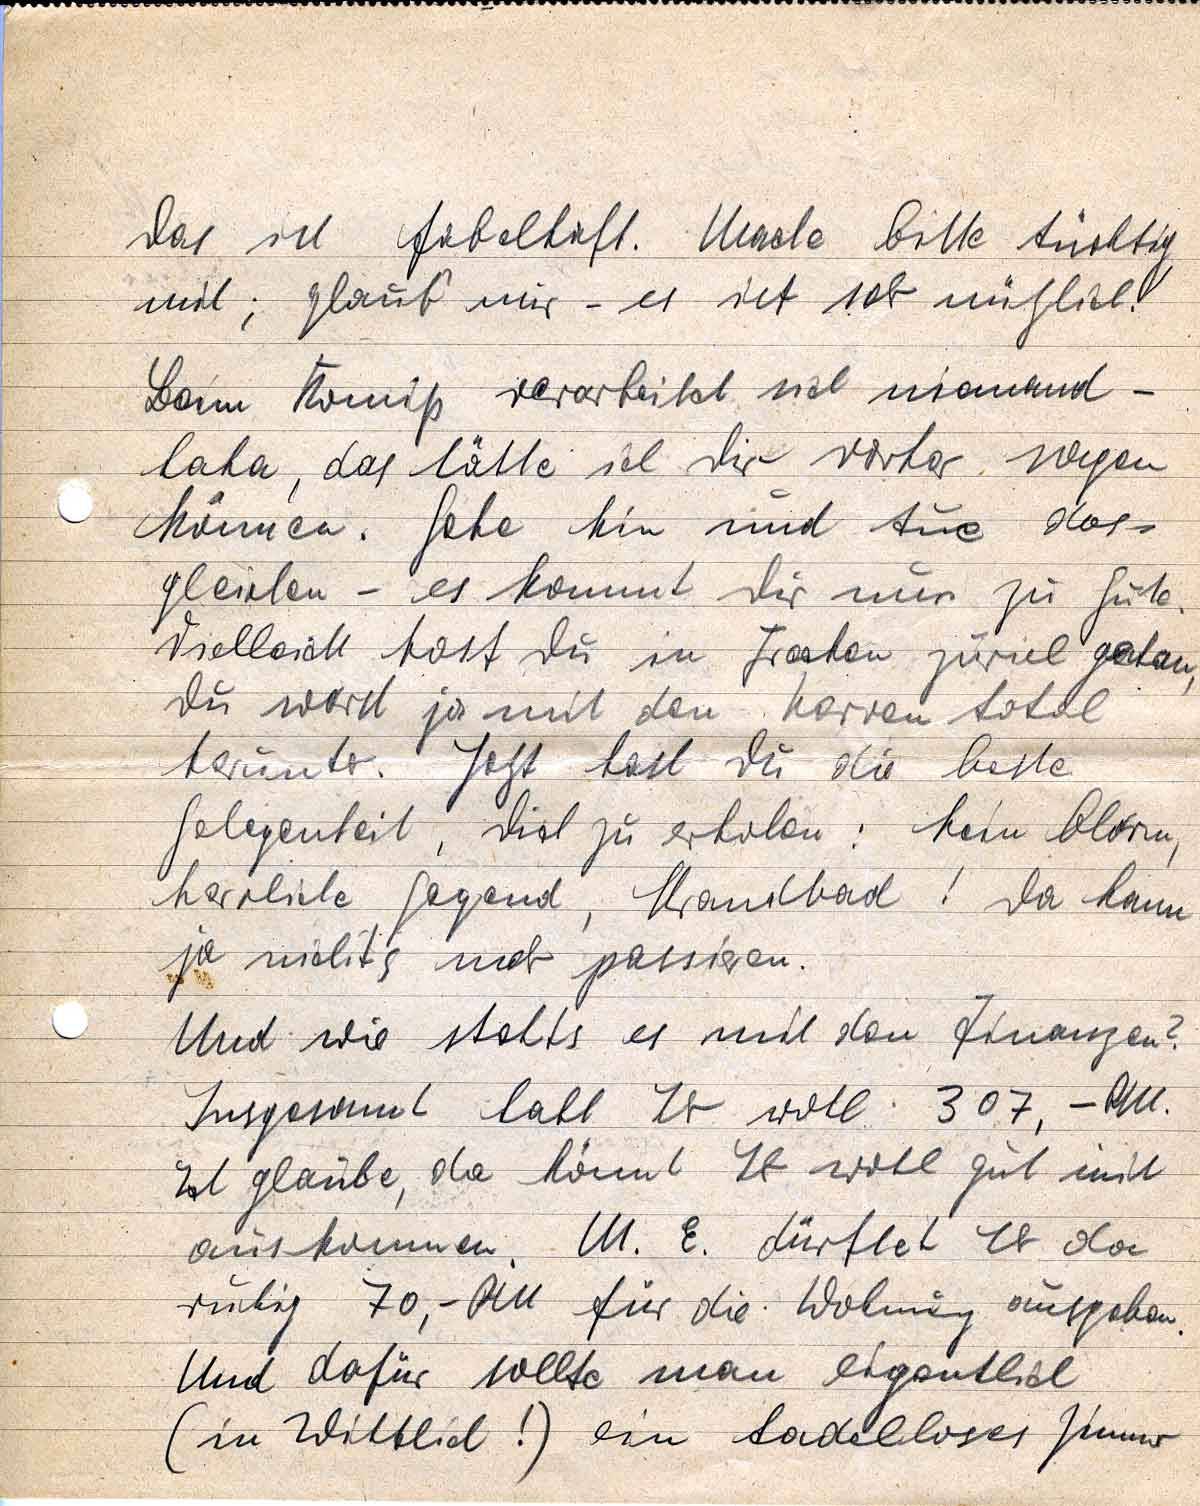 Das ist fabelhaft. Mache bitte tüchtig
mit; glaub mir - es ist sehr nützlich!
Beim Komiß verarbeitet sich niemand -
haha, das hätte ich Dir vorher sagen
können. Gehe hin und tue das-
gleichen - es kommt Dir nur zu Gute.
Vielleicht hast Du in zuviel getan,
Du warst ja mit den Nerven total
herunter. Jetzt hast Du die beste
Gelegenheit, Dich zu erholen: kein Alarm,
herrliche Gegend, Strandbad! Da kann
ja nichts mehr passieren.
Und wie stehts es mit den Finanzen?
Insgesamt habt Ihr wohl 307,- RM.
Ich glaube, da könnt Ihr wohl gut mit
auskommen. M. E. dürftet Ihr da
ruhig 70,- RM für die Wohnung ausgeben.
Und dafür sollte man eigentlich
(in Wittlich!) ein tadelloses Zimmer